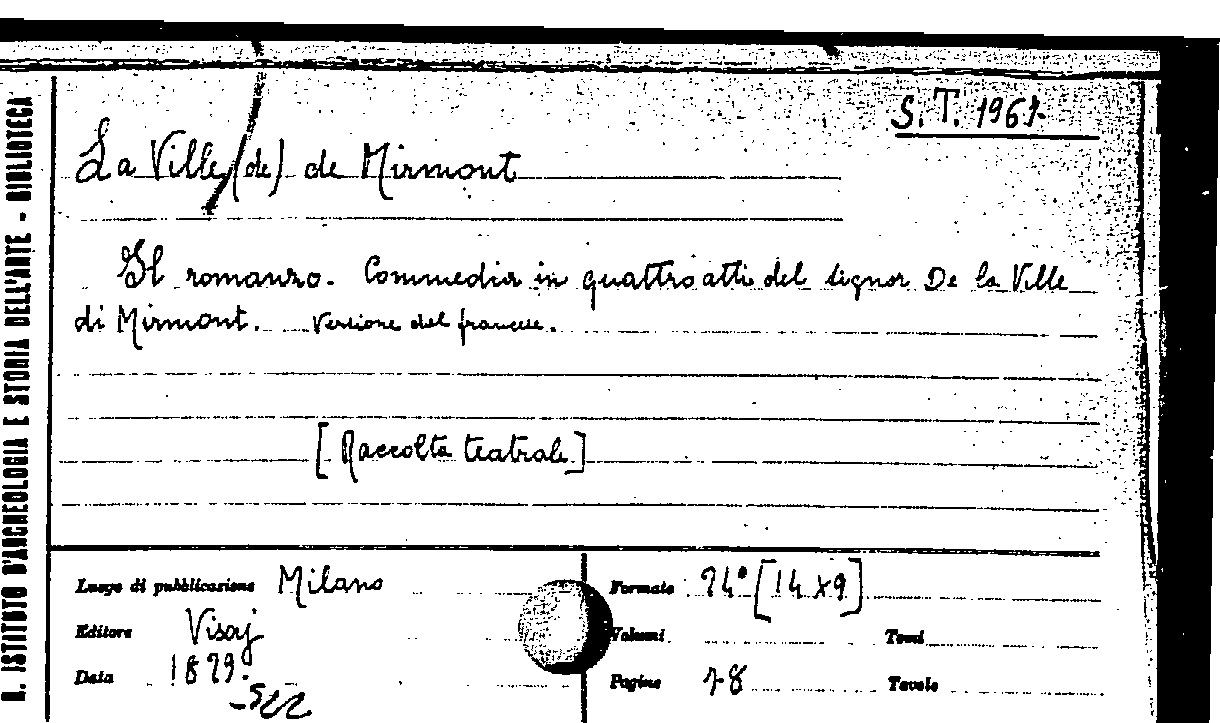 R. ISTITUTO D'ARCHEOLOGIA E STORIA DELL'ARTE - BIBLIOTECA
S. T. 1967.
La Ville (de) de Mirmont
Il romanzo. Commedia in quattro atti del signor De la Ville
di Mirmont. Versione dal francese.
[Raccolta teatrale]
Luogo di pubblicazione Milano
Formato 24° [14 x 9]
Editore Visaj
Volumi Tomi
Data 1829.
Pagine 78 Tavole